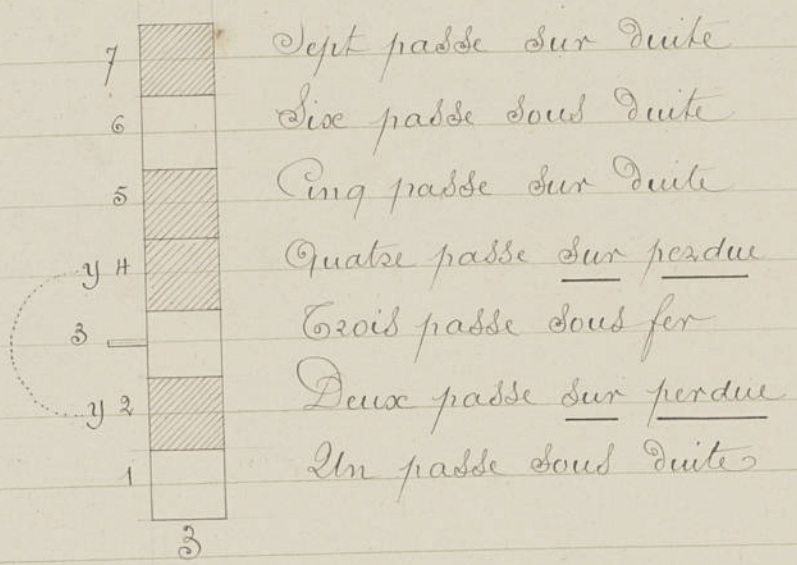 7 Sept passe sur duite
6 Six passe sous duite
5 Cinq passe sur duite
y 4 Quatre passe sur perdue
3 Trois passe sous fer
y 2 Deux passe sur perdue
1 Un passe sous duite
3